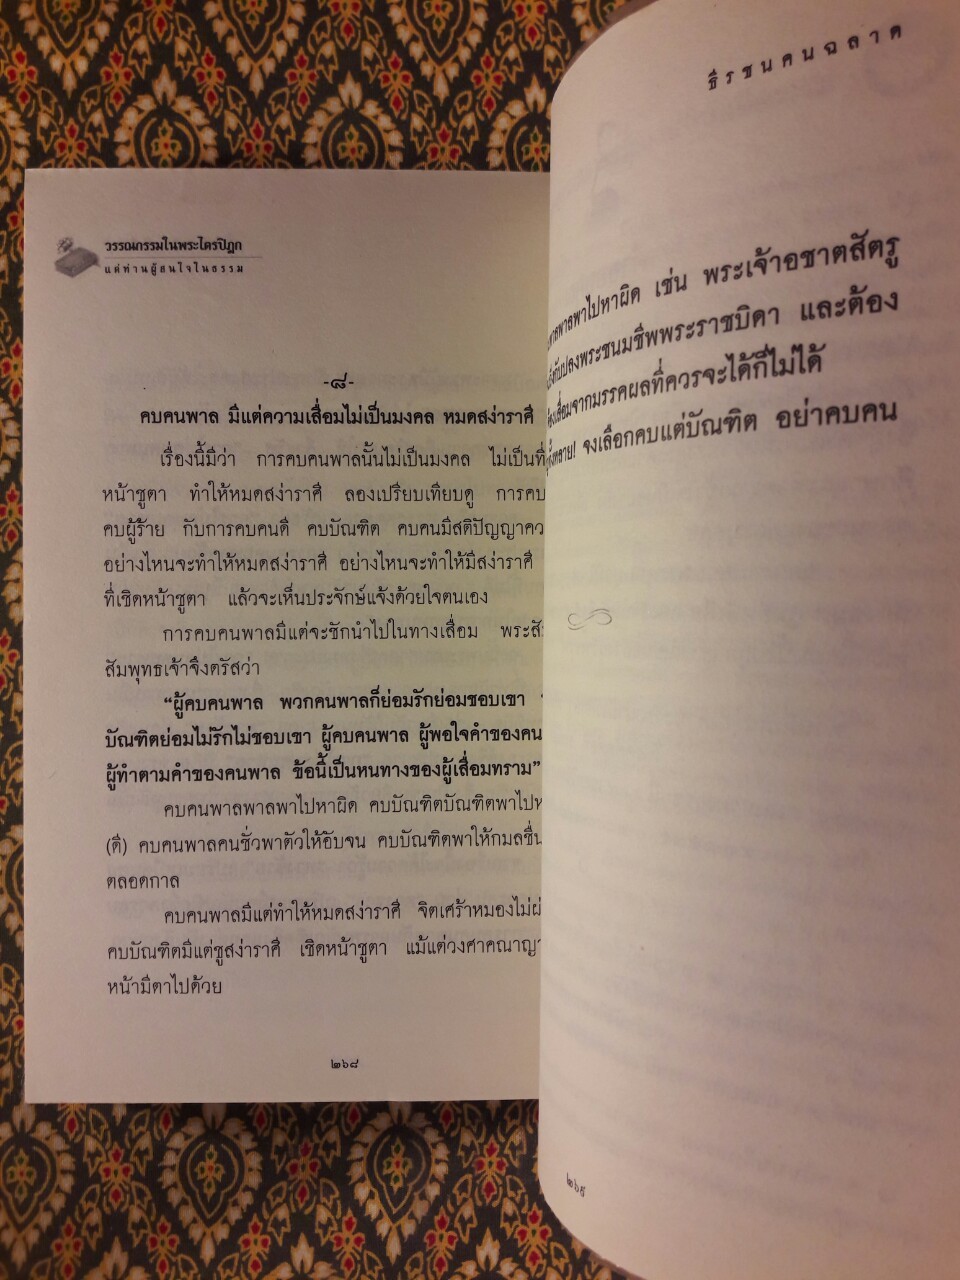 วรรณกรรมในพระไตรปิฎก
แด่ท่านผู้สนใจในธรรม
-๘-
คบคนพาล มีแต่ความเสื่อมไม่เป็นมงคล หมดสง่าราศี
เรื่องนี้มีว่า การคบคนพาลนั้นไม่เป็นมงคล ไม่เป็นที่
หน้าชูตา ทำให้หมดสง่าราศี ลองเปรียบเทียบดู การคบ
คบผู้ร้าย กับการคบคนดี คบบัณฑิต คบคนมีสติปัญญา
อย่างไหนจะทำให้หมดสง่าราศี อย่างไหนจะทำให้มีสง่าราศี
ที่เชิดหน้าชูตา แล้วจะเห็นประจักษ์แจ้งด้วยใจตนเอง
การคบคนพาลมีแต่จะชักนำไปในทางเสื่อม
สัมพุทธเจ้าจึงตรัสว่า
“ผู้คบคนพาล พวกคนพาลก็ย่อมรักย่อมชอบเขา
บัณฑิตย่อมไม่รักไม่ชอบเขา ผู้คบคนพาล ผู้พอใจคำของคน
ผู้ทำตามคำของคนพาล ข้อนี้เป็นหนทางของผู้เสื่อมทราม”
คบคนพาลพาลพาไปหาผิด คบบัณฑิตบัณฑิตพาไปห
(ดี) คบคนพาลคนชั่วพาตัวให้อับจน คบบัณฑิตพาให้กมลชื่น
ตลอดกาล
คบคนพาลมีแต่ทำให้หมดสง่าราศี จิตเศร้าหมองไม่ผ่
คบบัณฑิตมีแต่ชูสง่าราศี เชิดหน้าชูตา แม้แต่วงศาคณาญา
หน้ามีตาไปด้วย
๒๖๘
ธีรชนคนฉลาด
พาลพาไปหาผิด เช่น พระเจ้าอชาตสัตรู
ปลงพระชนมชีพพระราชบิดา และต้อง
เสื่อมจากมรรคผลที่ควรจะได้ก็ไม่ได้
จงเลือกคบแต่บัณฑิต อย่าคบคน